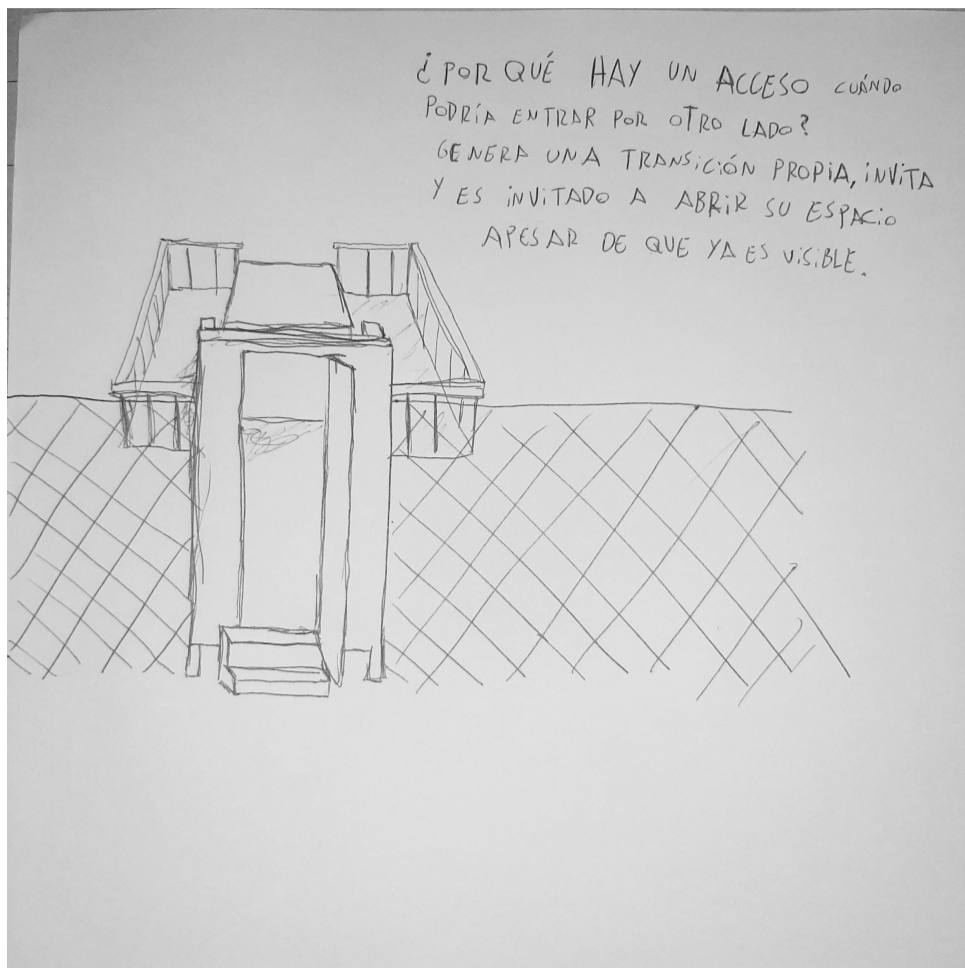 ¿POR QUÉ HAY UN ACCESO CUÁNDO
PODRÍA ENTRAR POR OTRO LADO?
GENERA UNA TRANSICIÓN PROPIA, INVITA
Y ES INVITADO A ABRIR SU ESPACIO
APESAR DE QUE YA ES VISIBLE.